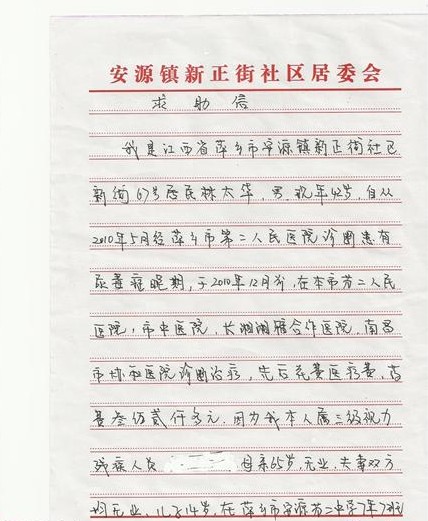 安源镇新正街社区居委会
求助信
我是江西省萍乡市安源镇新正街社区
新街67号居民林大华,男,现年42岁,自从
2010年5月经萍乡市第二人民医院诊断患有
尿毒症晚期,于2010年12月份,在本市第二人民
医院,市中医院,长湘湘雁合作医院,南昌
市协和医院诊断治疗,先后花费医疗费,
费叁伍贰仟多元,因为我本人属三级视力
残疾人员 母亲65岁,无业,夫妻双方
均无业,儿子14岁,在萍乡市安源第二中学7年7班